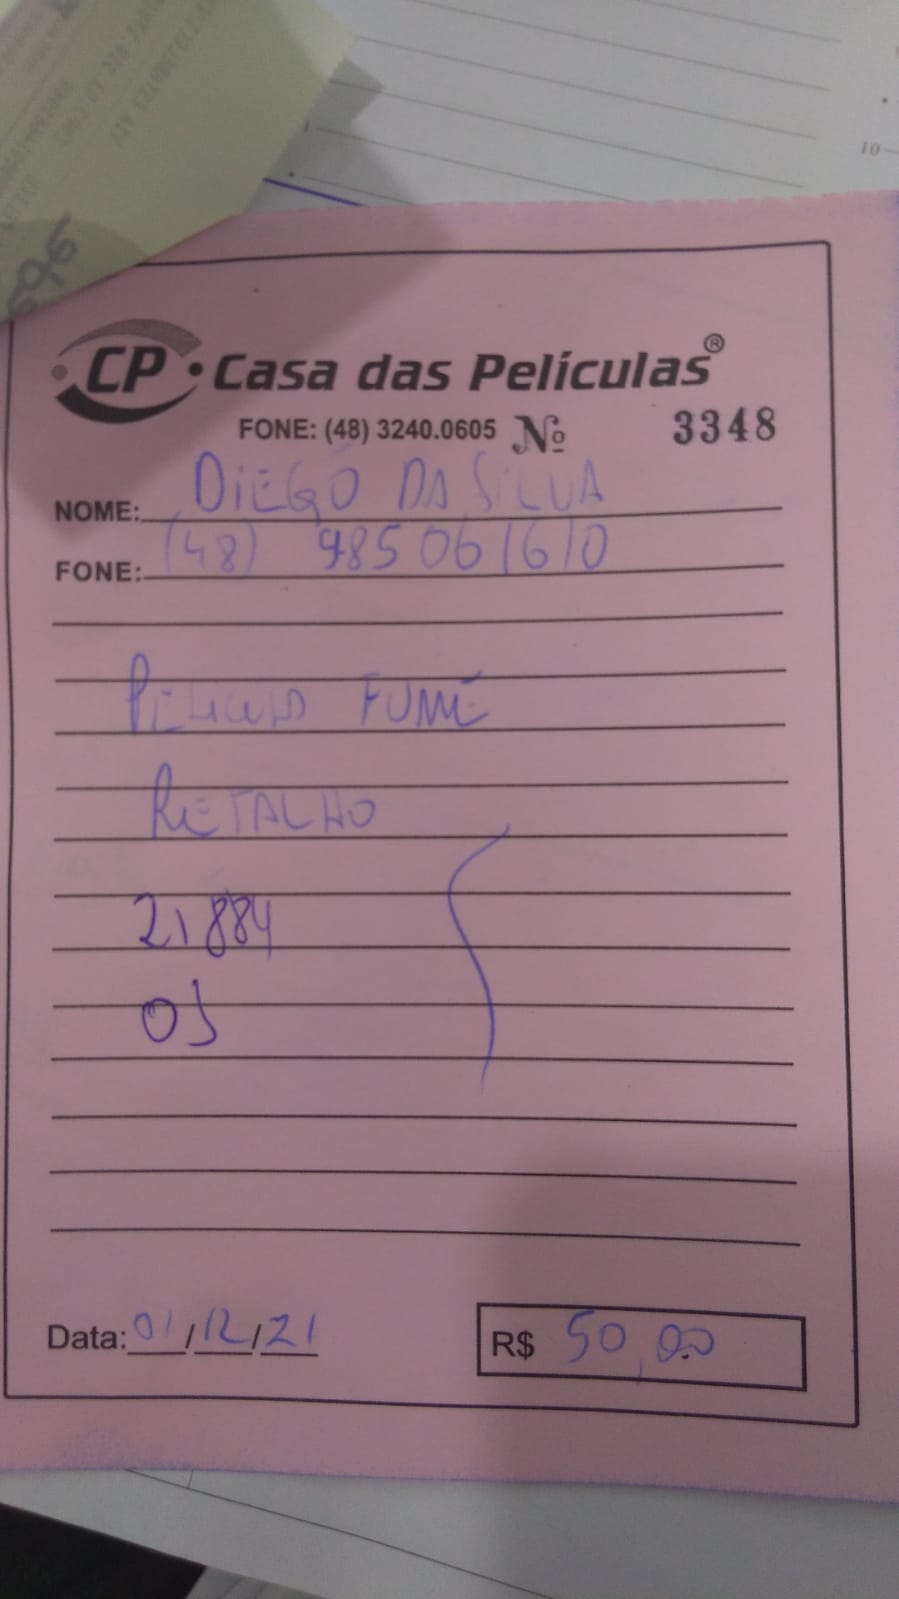 CP • Casa das Películas®
FONE: (48) 3240.0605 Nº 3348
NOME: DIEGO DA SILVA
FONE: (48) 985061610
PELICULA FUMÊ
RETALHO
21884
Data: 01/12/21
R$ 50,00
10